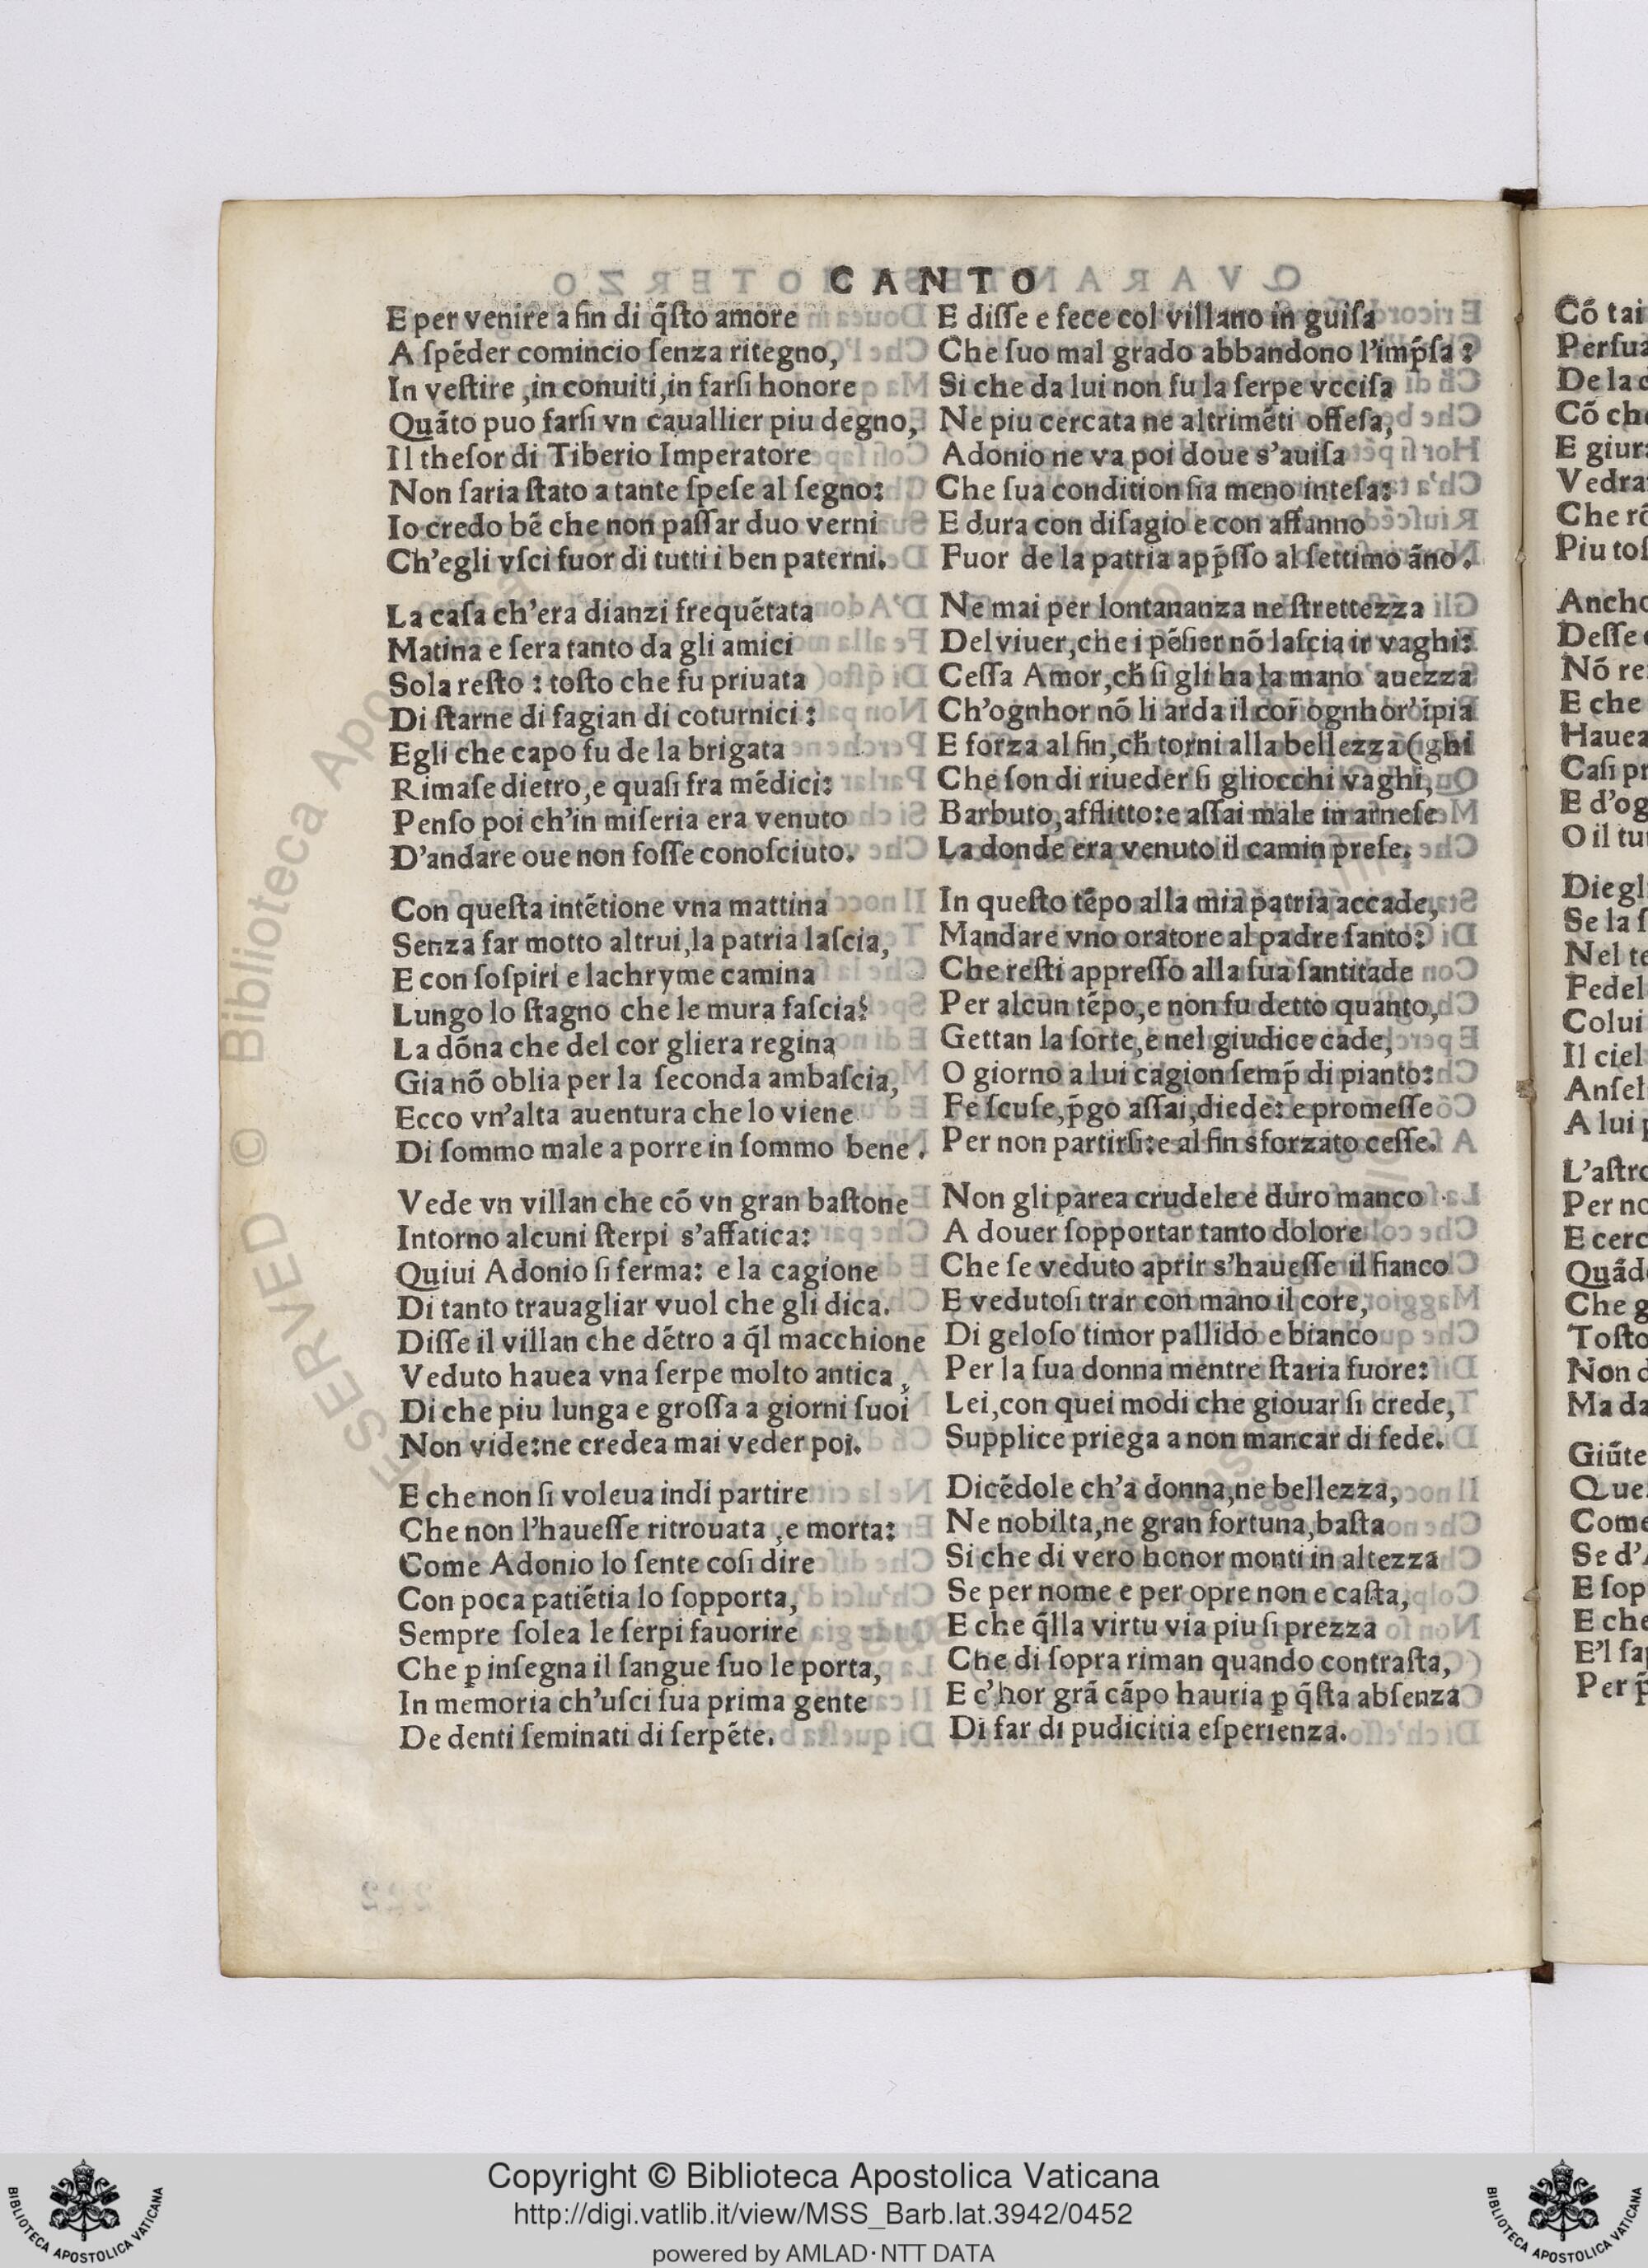 CANTO
E per venire a fin di q̃ſto amore
A ſpẽder comincio ſenza ritegno,
In veſtire ,in conuiti,in farſi honore
Quãto puo farſi vn cauallier piu degno,
Il theſor di Tiberio Imperatore
Non ſaria ſtato a tante ſpeſe al ſegno:
Io credo bẽ che non paſſar duo verni
Ch'egli vſci fuor di tutti i ben paterni.
La caſa ch'era dianzi frequẽtata
Matina e ſera tanto da gli amici
Sola reſto : toſto che fu priuata
Di ſtarne di fagian di coturnici :
Egli che capo fu de la brigata
Rimaſe dietro,e quaſi fra mẽdici:
Penſo poi ch'in miſeria era venuto
D'andare oue non foſſe conoſciuto.
Con queſta intẽtione vna mattina
Senza far motto altrui,la patria laſcia,
E con ſoſpiri e lachryme camina
Lungo lo ſtagno che le mura faſcia:
La dõna che del cor gliera regina
Gia nõ oblia per la ſeconda ambaſcia,
Ecco vn'alta auentura che lo viene
Di ſommo male a porre in ſommo bene .
Vede vn villan che cõ vn gran baſtone
Intorno alcuni ſterpi s'affatica:
Quiui Adonio ſi ferma: e la cagione
Di tanto trauagliar vuol che gli dica.
Diſſe il villan che dẽtro a q̃l macchione
Veduto hauea vna ſerpe molto antica ,
Di che piu lunga e groſſa a giorni ſuoi
Non vide:ne credea mai veder poi.
E che non ſi voleua indi partire
Che non l'haueſſe ritrouata ,e morta:
Come Adonio lo ſente coſi dire
Con poca patiẽtia lo ſopporta,
Sempre ſolea le ſerpi fauorire
Che ꝑ inſegna il ſangue ſuo le porta,
In memoria ch'uſci ſua prima gente
De denti ſeminati di ſerpẽte.
E diſſe e fece col villano in guiſa
Che ſuo mal grado abbandono l'imp̃ſa :
Si che da lui non fu la ſerpe vcciſa
Ne piu cercata ne altrimẽti offeſa,
Adonio ne va poi doue s'auiſa
Che ſua condition ſia meno inteſa:
E dura con diſagio e con affanno
Fuor de la patria app̃ſſo al ſettimo ãno.
Ne mai per lontananza ne ſtrettezza
Del viuer,che i pẽſier nõ laſcia ir vaghi:
Ceſſa Amor,ch̃ ſi gli ha la mano auezza
Ch'ognhor nõ li arda il cor ognhor'ĩpia
E forza al fin,ch̃ torni alla bellezza (ghi
Che ſon di riueder ſi gliocchi vaghi,
Barbuto,afflitto:e aſſai male in arneſe
La donde era venuto il camin preſe.
In queſto tẽpo alla mia patria accade,
Mandare vno oratore al padre ſanto:
Che reſti appreſſo alla ſua ſantitade
Per alcun tẽpo,e non fu detto quanto,
Gettan la ſorte,e nel giudice cade,
O giorno a lui cagion ſemp̃ di pianto:
Fe ſcuſe,p̃go aſſai,diede: e promeſſe
Per non partirſi:e al fin sforzato ceſſe.
Non gli parea crudele e duro manco
A douer ſopportar tanto dolore
Che ſe veduto aprir s'haueſſe il fianco
E vedutoſi trar con mano il core,
Di geloſo timor pallido e bianco
Per la ſua donna mentre ſtaria fuore:
Lei,con quei modi che giouar ſi crede,
Supplice priega a non mancar di fede.
Dicẽdole ch'a donna,ne bellezza,
Ne nobilta,ne gran fortuna,baſta
Si che di vero honor monti in altezza
Se per nome e per opre non e caſta,
E che q̃lla virtu via piu ſi prezza
Che di ſopra riman quando contraſta,
E c'hor grã cãpo hauria ꝑ q̃ſta abſenza
Di far di pudicitia eſperienza.
Cõ tai
De la
E giur
Vedra
E che
Hauea
E d'og
O il tu
Fedel
Colui
Il ciel
A lui
L'aſtro
Quãd
Che g
Toſto
Non d
Ma da
Giũte
Que
Come
E ſop
E che
Copyright © Biblioteca Apostolica Vaticana
http://digi.vatlib.it/view/MSS_Barb.lat.3942/0452
powered by AMLAD·NTT DATA
BIBLIOTECA APOSTOLICA VATICANA
BIBLIOTECA APOSTOLICA VATICANA